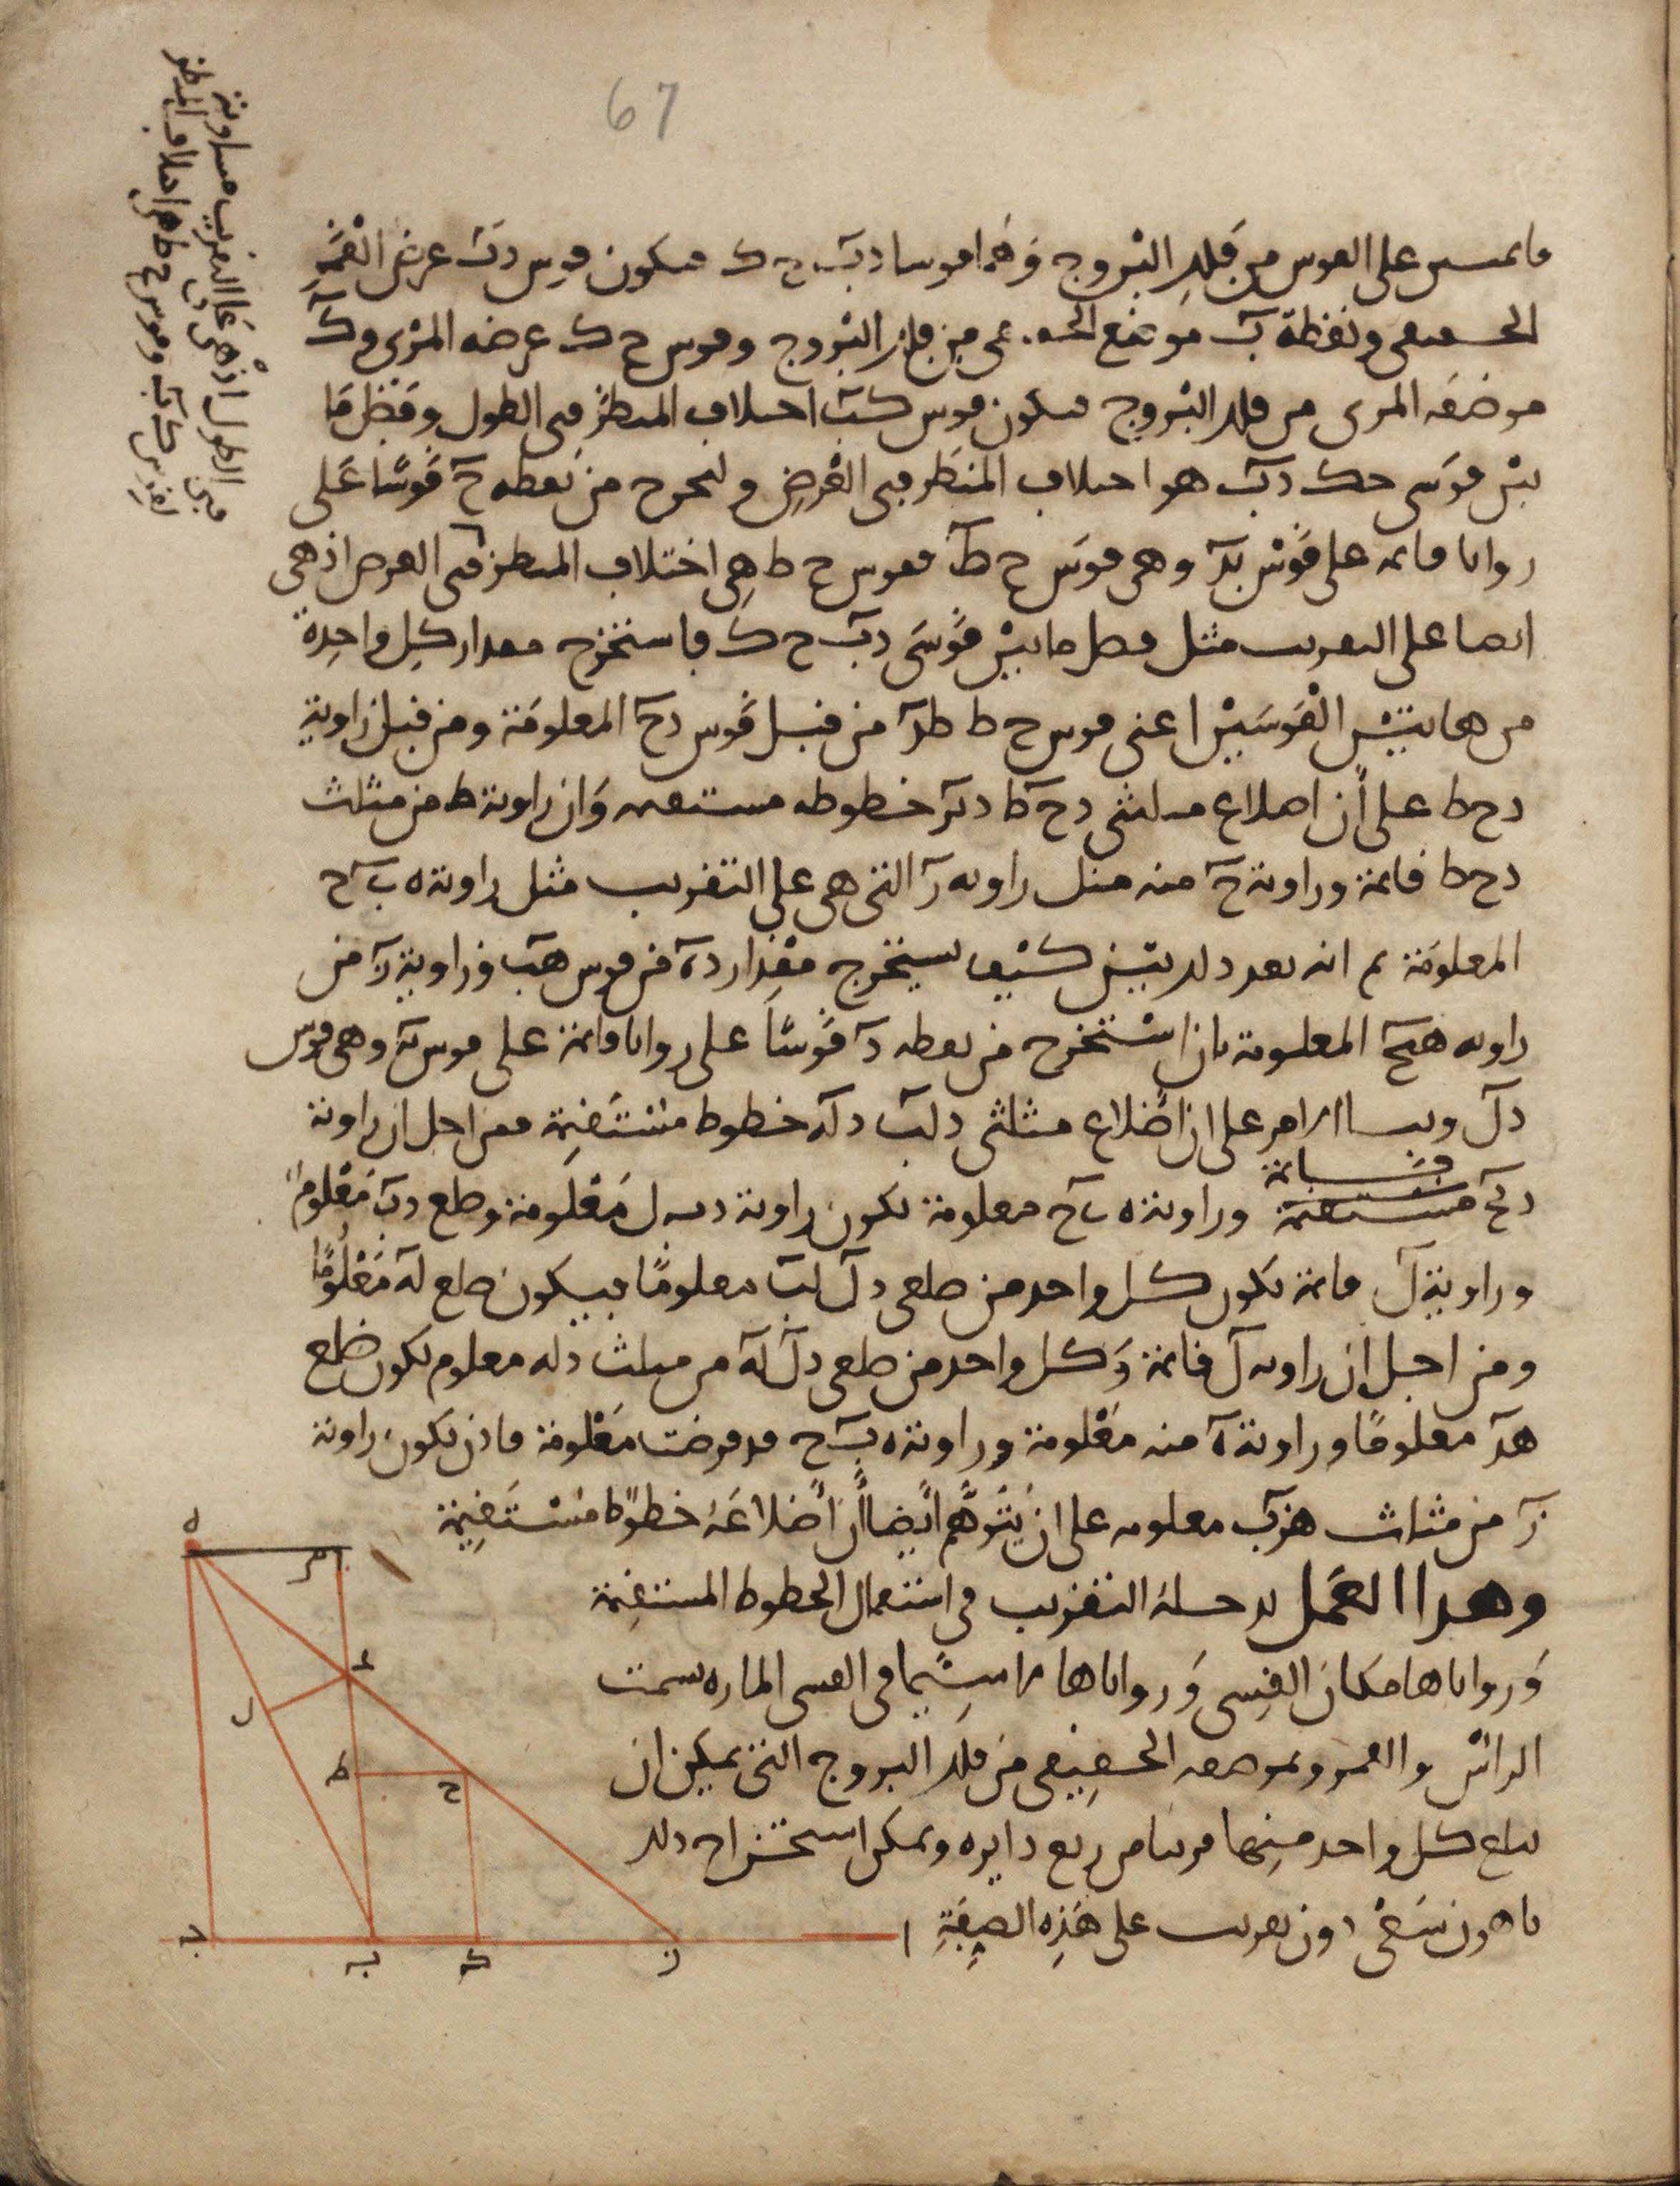 67
قائمتين على القوس من فلك البروج وهما قوسا دب ح ك فيكون قوس دب عرض القمر
الحقيقي ونقطة ب موضعه الحقيقي من فلك البروج وقوس ح ك عرضه المرئي وك
موضعه المرئي من فلك البروج فيكون قوس كب اختلاف المنظر في الطول وفضل ما
بين قوسي حك دب هو اختلاف المنظر في العرض ولنخرج من نقطة ح قوسا على
زوايا قائمة على قوس بد وهي قوس ح ط فقوس ح ط هي اختلاف المنظر في العرض اذ هي
ايضا على التقريب مثل فضل ما بين قوسي دب ح ك فاستخرج مقدار كل واحدة
من هاتين القوسين اعني قوس ح ط طد من قبل قوس دح المعلومة ومن قبل زاوية
دحط على أن اضلاع مثلثي دح ط دبز خطوطه مستقيمة وان زاوية ط من مثلث
دحط قائمة وزاوية ح منه مثل زاوية ز التي هي على التقريب مثل زاوية ه ب ح
المعلومة ثم انه بعد ذلك بين كيف يستخرج مقدار ده من قوس هب وزاوية ز من
زاوية هبح المعلومة بان استخرج من نقطة د قوسا على زوايا قائمة على قوس به وهي قوس
دل على ان أضلاع مثلثي دلب دله خطوط مستقيمة فمن اجل ان زاوية
قائمة
دبح مستقيمة وزاوية ه ب ح معلومة تكون زاوية دبل معلومة وضلع دب معلوم
وزاوية ل قائمة تكون كل واحد من ضلعي دل لب معلوما فيكون ضلع له معلوما
ومن اجل ان زاوية ل قائمة وكل واحد من ضلعي دل له من مثلث دله معلوم يكون ضلع
هد معلوما وزاوية ه منه معلومة وزاوية ه ب ح قد فرضت معلومة فاذن تكون زاوية
ز من مثلث هزب معلومة على ان يتوهم أيضا أن أضلاعه خطوط مستقيمة
وهذا العمل التقريب في استعمال الخطوط المستقيمة
وزواياها مكان القسي وزواياها لا سيما في القسي المارة بسمت
الرأس والقمر وبموضعه الحقيقي من فلك البروج التي يمكن ان
تبلغ كل واحد منها قريبا من ربع دايرة ويمكن استخراج ذلك
باهون سعي دون تقريب على هذه الصفة
في الطول اذ هي على التقريب مساوية
لقوس ك ب وقوس ح ط هي اختلاف المنظر
ه
م
د
ل
ط
ح
ب
ك
ز
ا